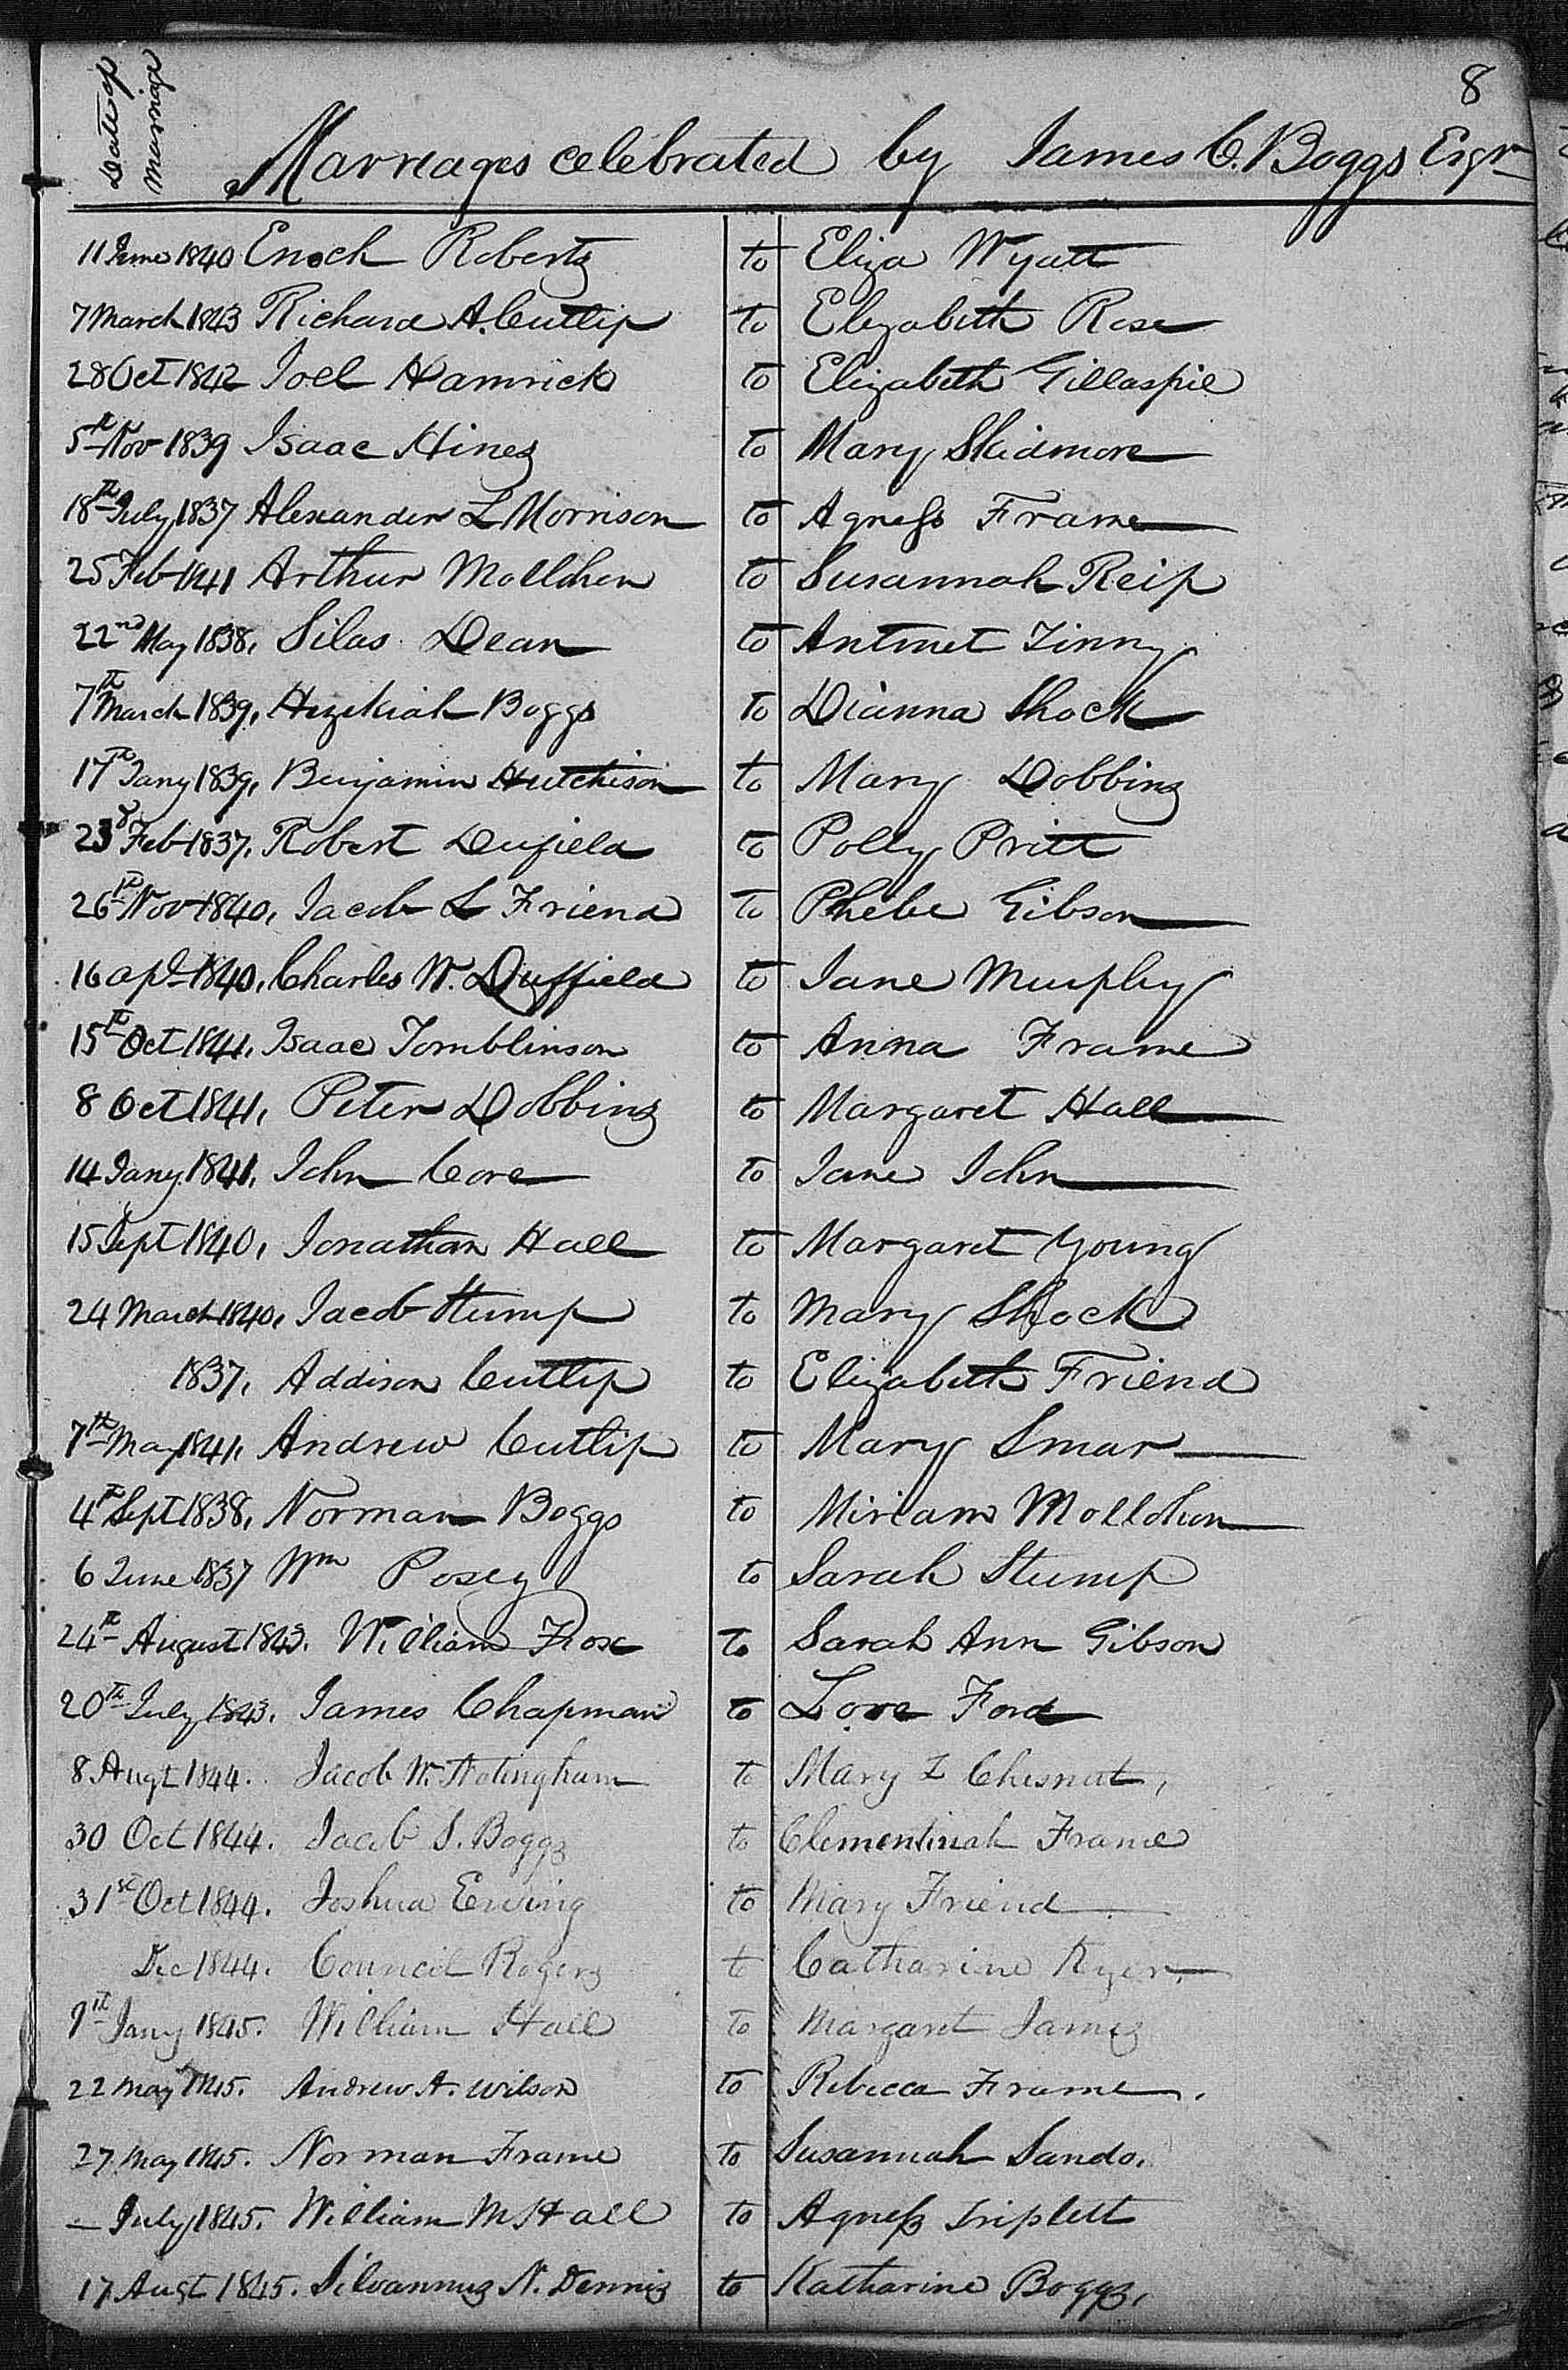 8
Date of
Marriage
Marreages celebrated by James C. Boggs Esqr
11 June 1840 Enoch Roberts to Eliza Wyatt
7 March 1843 Richard A. Cutlip to Elizabeth Rose
28 Oct 1842 Joel Hamrick to Elizabeth Gillaspie
5th Nov 1839 Isaac Hines to Mary Skidmore
18th July 1837 Alexander L Morrison to Agness Frame
25 Feb 1841 Arthur Mollohon to Susannah Reip
22nd May 1838, Silas Dean to Antinet Zinn
7th March 1839, Hezekiah Boggs to Dianna Shock
17th Jany 1839, Benjamin Hutchison to Mary Dobbins
23d Feb 1837, Robert Dufield to Polly Pritt
26th Nov 1840, Jacob L Friend to Phebe Gibson
16 apl 1840, Charles W. Duffield to Jane Murphy
15th Oct 1841, Isaac Tomblinson to Anna Frame
8 Oct 1841, Peter Dobbins to Margaret Hall
14 Jany 1841, John Core to Jane John
15 Sept 1840, Jonathan Hall to Margaret Young
24 March 1840, Jacob Stump to Mary Shock
1837, Addison Cutlip to Elizabeth Friend
7th May 1841, Andrew Cutlip to Mary Smar
4th Sept 1838, Norman Boggs to Miriam Mollohon
6 June 1837 Wm Posey to Sarah Stump
24th August 1843. William Rose to Sarah Ann Gibson
20th July 1843. James Chapman to Love Ford
8 Augt 1844. Jacob W. Notingham to Mary L Chesnut,
30 Oct 1844. Jacob S. Boggs to Clementinah Frame
31st Oct 1844. Joshua Ewing to Mary Friend
Dec 1844. Council Rogers to Catharine Kyer.
9th Jany 1845. William Hall to Margaret James
22 May 1845. Andrew A. Wilson to Rebecca Frame.
27 May 1845. Norman Frame to Susannah Sands.
— July 1845. William M Hall to Agness Triplett
17 Augt 1845. Silvannus N. Dennis to Katharine Boggs,